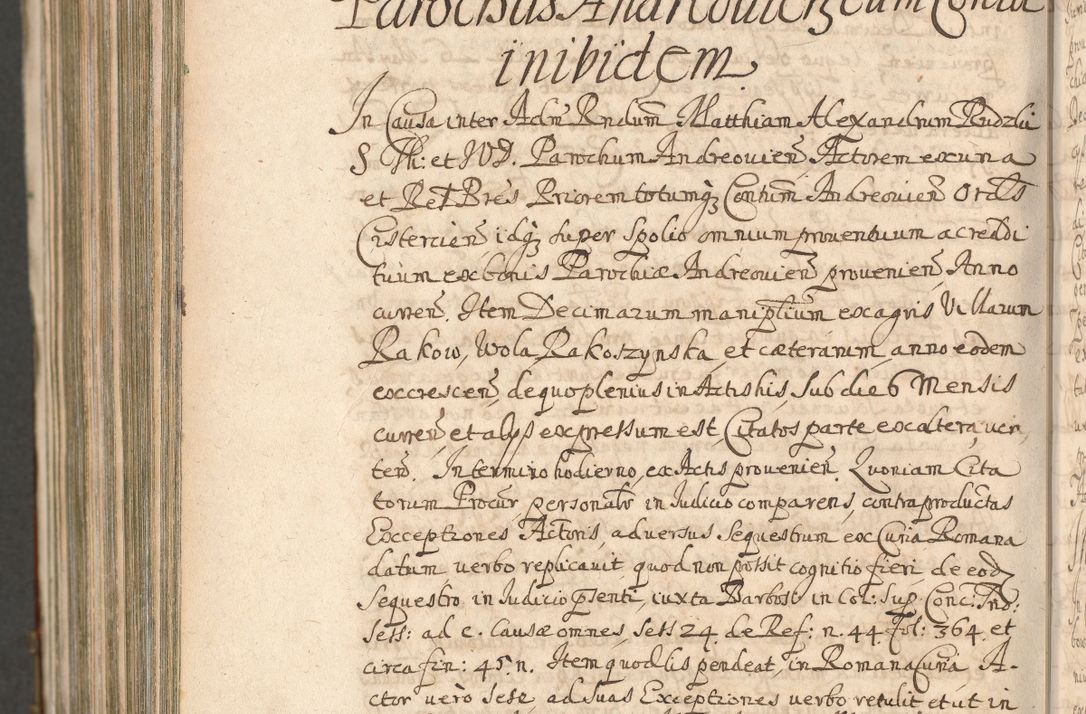 Parochus Andreouien cum Conu
inibidem
In Causa inter Adm Rndum Matthiam Alexandrum Rudzki
S Th: et IVD. Parochum Andreouien Actorem ex una
et Rel Bres Priorem totumq; Contum Andreouien Ordis
Cistercien idq; super Spolio omnium prouentuum ac reddi
tuum ex bonis Parochiæ Andreouien prouenien, Anno
curren. Item Decimarum maniplium ex agris Villarum
Rakow, Wola Rakoszynska, et cæterarum, anno eodem
excrescen, de quo plenius in Actis his, sub die 6 Mensis
curren, et alys expressum est, Citatos parte ex altera, ver,
ten. In termino hodierno, ex Actis prouenien. Quoniam Cita
torum Procur, personalr in Iudicio comparens, contra productas
Exceptiones Actoris, aduersus Sequestrum ex Curia Romana
datum uerbo replicauit, quod non possit cognitio fieri, de eod;
Sequestro in Iudicio psenti, iuxta Barbost in Col: sup. Conc: Trid:
Sess: ad c. Causæ omnes, sess 24. de Ref: n. 44 fol: 364. et
circa fin: 45. n. Item quod lis pendeat, in Romana Curia A-
ctor uero sese, ad suas Exceptiones uerbo retulit et ut in